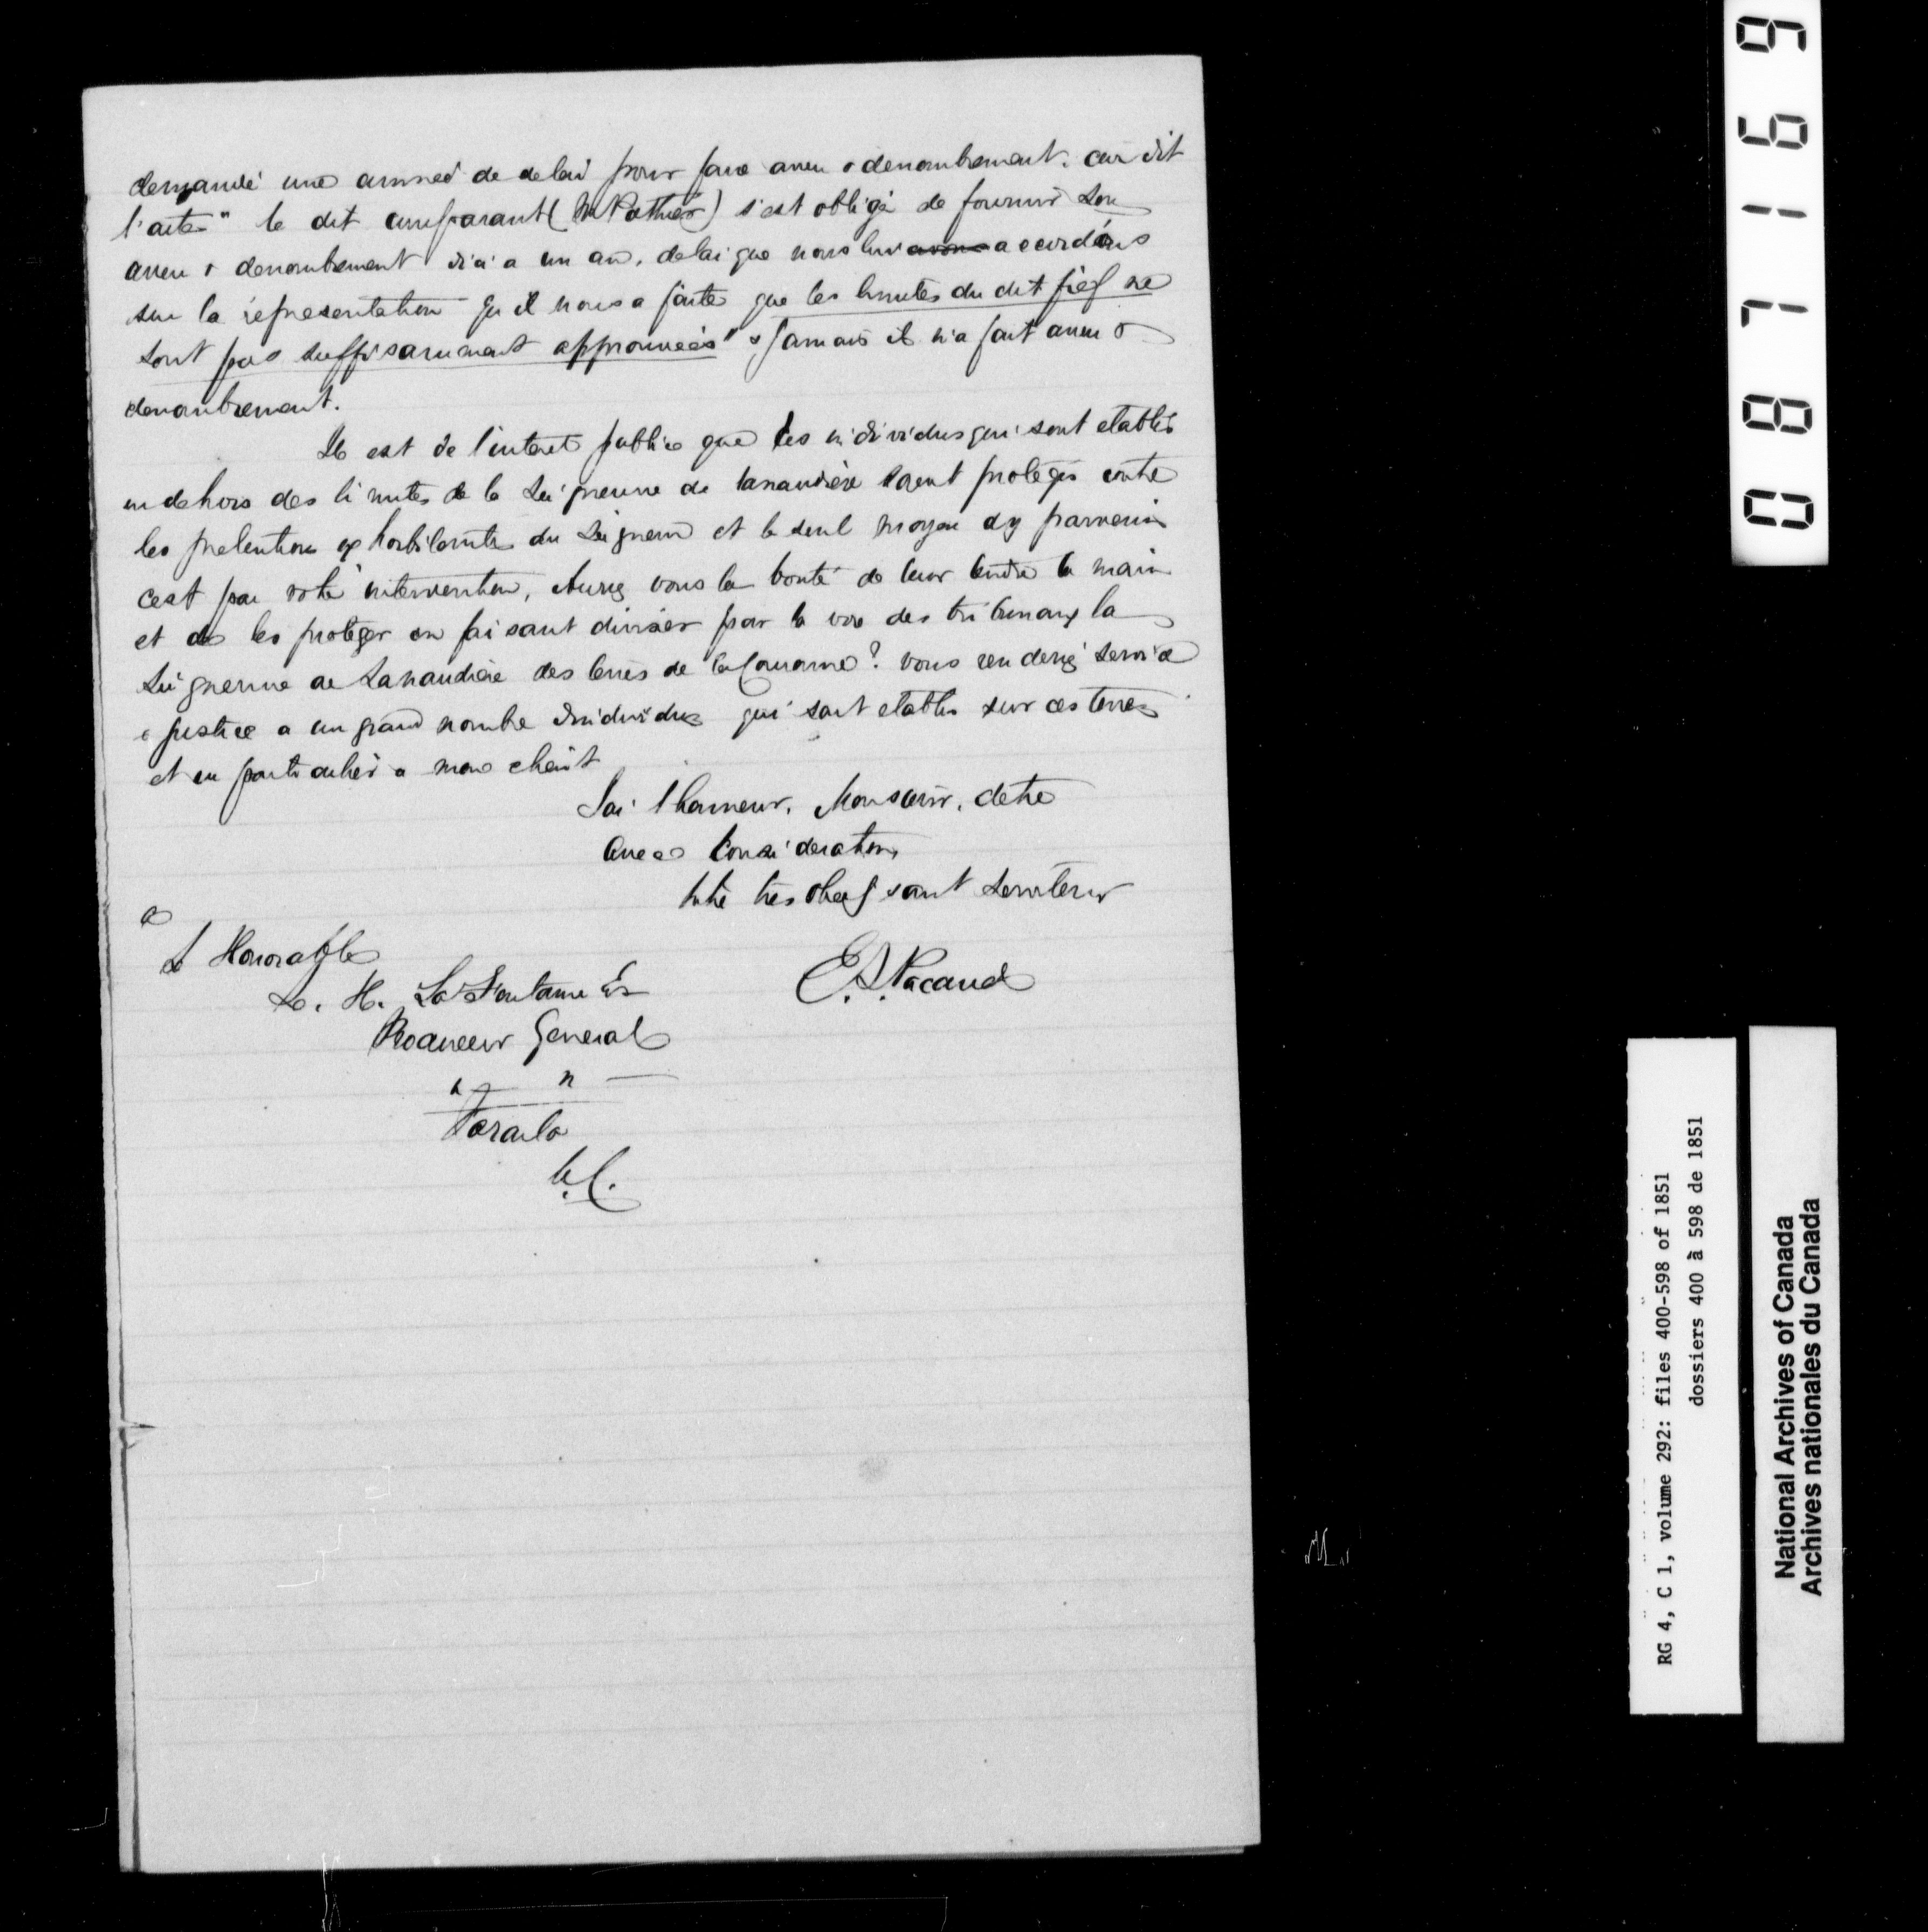 demandé une année de delai pour faire aveu & denombrement. car dit
l'acte " le dit comparant (Mr Pothier) s'est obligé de fournir son
aveu & denombrement d'ici a un an, delai que nous lui avons accordons
sur la représentation qu'il nous a faite que les limites du dit fief ne
sont pas suffisamment approuvées " & jamais il n'a fait aveu &
denombrement.
Il est de l'interet public que les individus qui sont etablis
en dehors des limites de la Seigneurie de Lanaudière soient protégés contre
les pretentions exhorbitantes du Seigneur et le seul moyen d'y parvenir
cest par votre intervention, Auriez vous la bonté de leur tendre la main
et de les protéger en faisant diviser par la voie des tribunaux la
Seigneurie de Lanaudière des terres de la Couronne? vous renderiez service
& justice a un grand nombre dindividus qui sont etablis sur ces terres
et en particulier a mon client
Jai lhonneur, Monsieur, detre
avec consideration,
Votre très obeissant serviteur
E. P. Pacaud
a
L Honorable
L. H. LaFontaine Er
Procureur General
" "
Toronto
U.C.
087169
RG 4, C 1, volume 292: files 400-598 of 1851
dossiers 400 à 598 de 1851
National Archives of Canada
Archives nationales du Canada